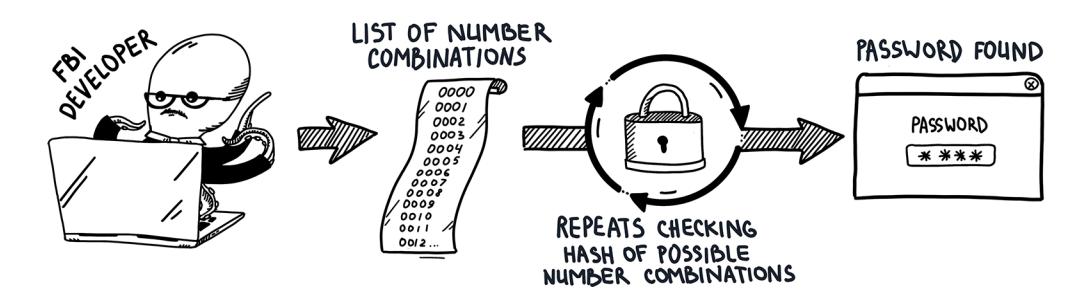 FBI
DEVELOPER
LIST OF NUMBER
COMBINATIONS
0000
0001
0002
0003
0004
0005
0006
0007
0008
0009
0010
0011
0012...
REPEATS CHECKING
HASH OF POSSIBLE
NUMBER COMBINATIONS
PASSWORD FOUND
PASSWORD
* ***